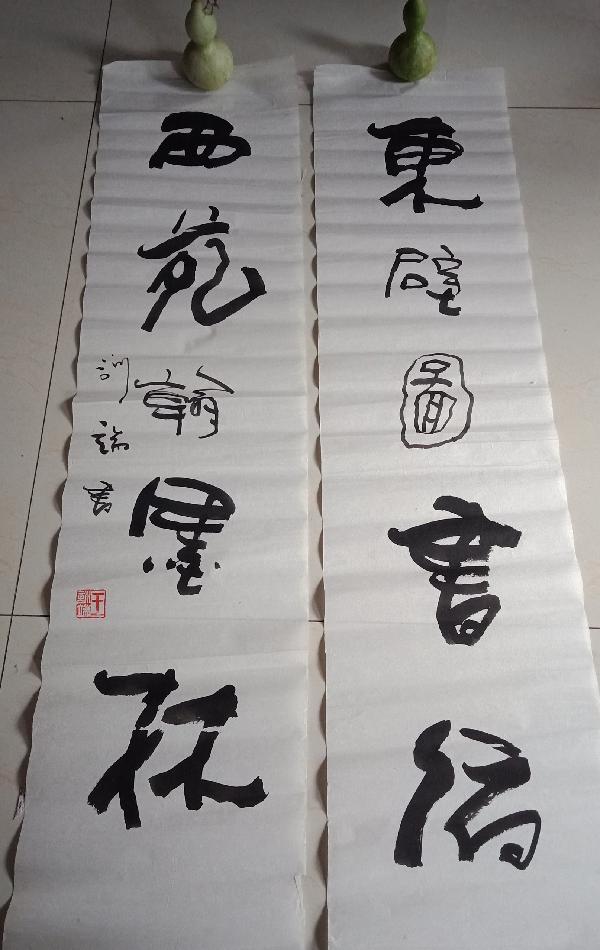 東壁圖書府
西苑翰墨林
訓端書